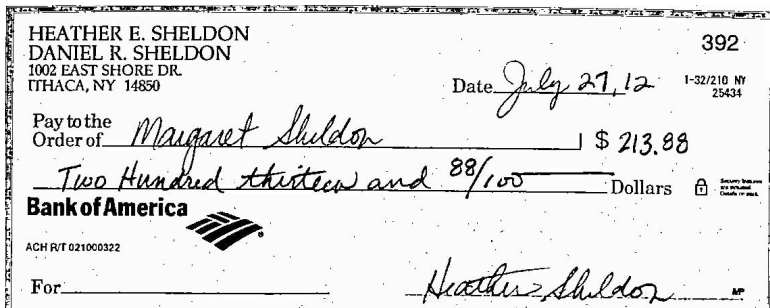 HEATHER E. SHELDON
DANIEL R. SHELDON
1002 EAST SHORE DR.
ITHACA, NY 14850
392
Date July 27, 12
1-32/210 NY
25434
Pay to the
Order of Margaret Sheldon $ 213.88
Two Hundred thirteen and 88/100 Dollars
Security features
are included.
Details on back.
Bank of America
ACH R/T 021000322
For
Heather Sheldon MP